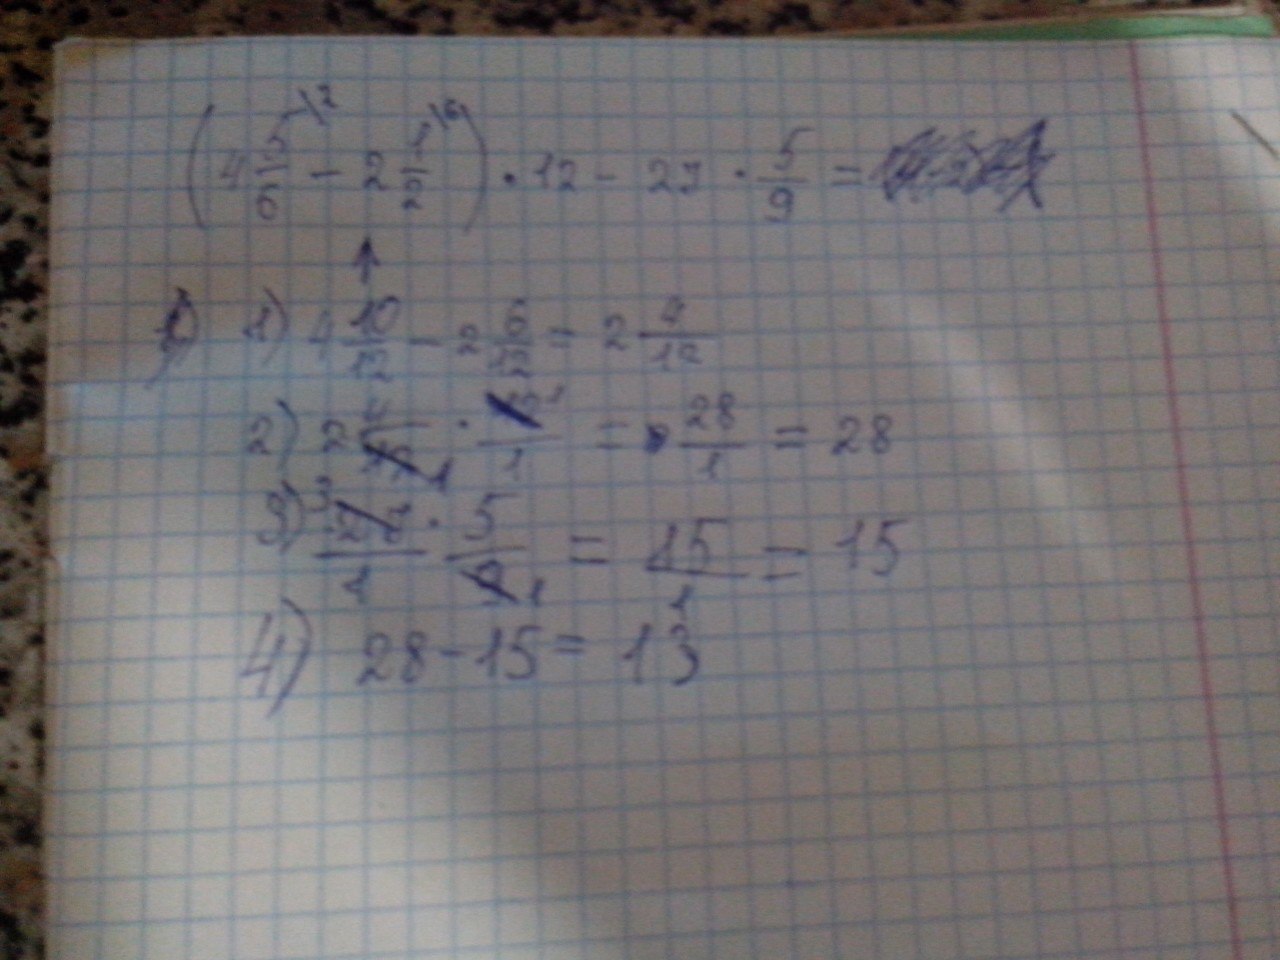 (4 5/6 \2 − 2 1/2 \6) · 12 − 27 · 5/9 =
1) 4 10/12 − 2 6/12 = 2 4/12
2) 2 4/12 1 · 12 1/1 = 28/1 = 28
3) 3 27/1 · 5/9 1 = 15/1 = 15
4) 28 − 15 = 13